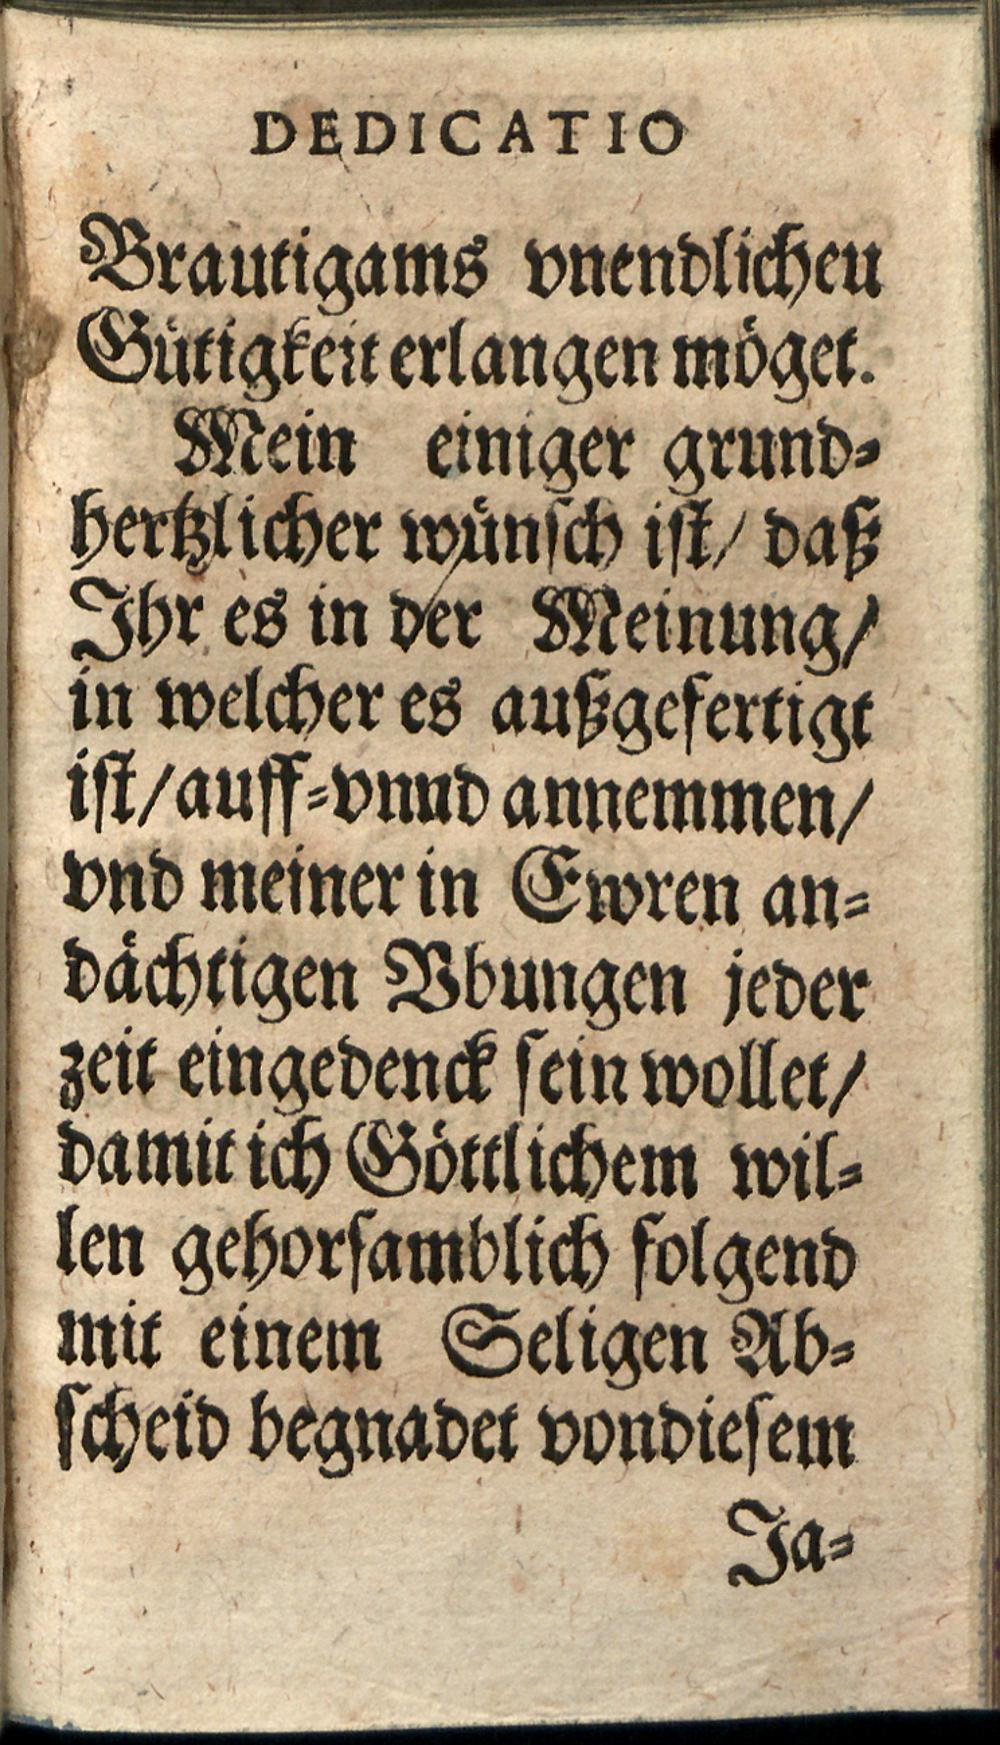 DEDICATIO
Brautigams vnendlicheu
Gütigkeit erlangen möget.
Mein einiger grund-
hertzlicher wünsch ist/ daß
Ihr es in der Meinung/
in welcher es außgefertigt
ist/ auff-vnnd annemmen/
vnd meiner in Ewren an-
dächtigen Vbungen jeder
zeit eingedenck sein wollet/
damit ich Göttlichem wil-
len gehorsamblich folgend
mit einem Seligen Ab-
scheid begnadet vondiesem
Ja-